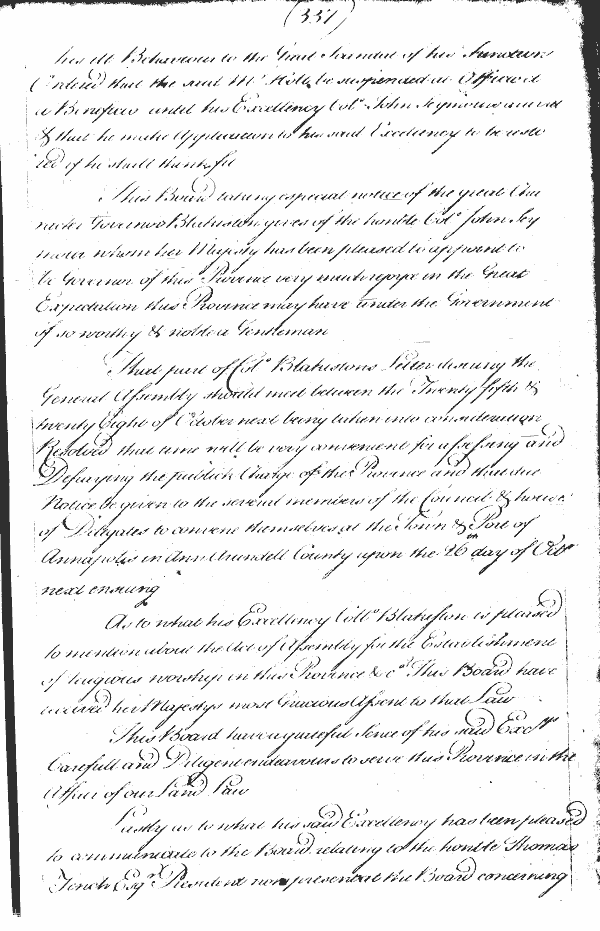 (551)
his ill Behaviour to the Great Scandal of his Function
Ordered that the said Mr. Hole be suspended ab Officio et
a Beneficio until his Excellency Colo. John Seymour arrived
& that he make Application to his said Excellency to be resto
red if he shall think fit
This Board taking especial notice of the great Cha
racter Governor Blakiston gives of the honble Colo. John Sey
mour whom her Majesty has been pleased to appoint to
be Governor of this Province very much rejoyce in the Great
Expectation this Province may have under the Government
of so worthy & noble a Gentleman
That part of Colo. Blakistons Letter desiring the
General Assembly should meet between the Twenty fifth &
twenty Eight of October next being taken into consideration
Resolved that time will be very convenient for assessing and
Defraying the publick Charge of the Province and that due
Notice be given to the several members of the Council & house
of Delegates to convene themselves at the Town & Port of
Annapolis in Ann Arundell County upon the 26th day of Octbr
next ensuing
As to what his Excellency Collo. Blakiston is pleased
to mention about the Act of Assembly for the Establishment
of religious worship in this Province &ca. This Board have
received her Majestys most Gracious Assent to that Law
This Board have a grateful Sence of his said Excys
Carefull and Diligent endeavours to serve this Province in the
Affair of our Land Law
Lastly as to what his said Excellency has been pleased
to communicate to the Board relating to the honble Thomas
Tench Esqr. President now present at the Board concerning